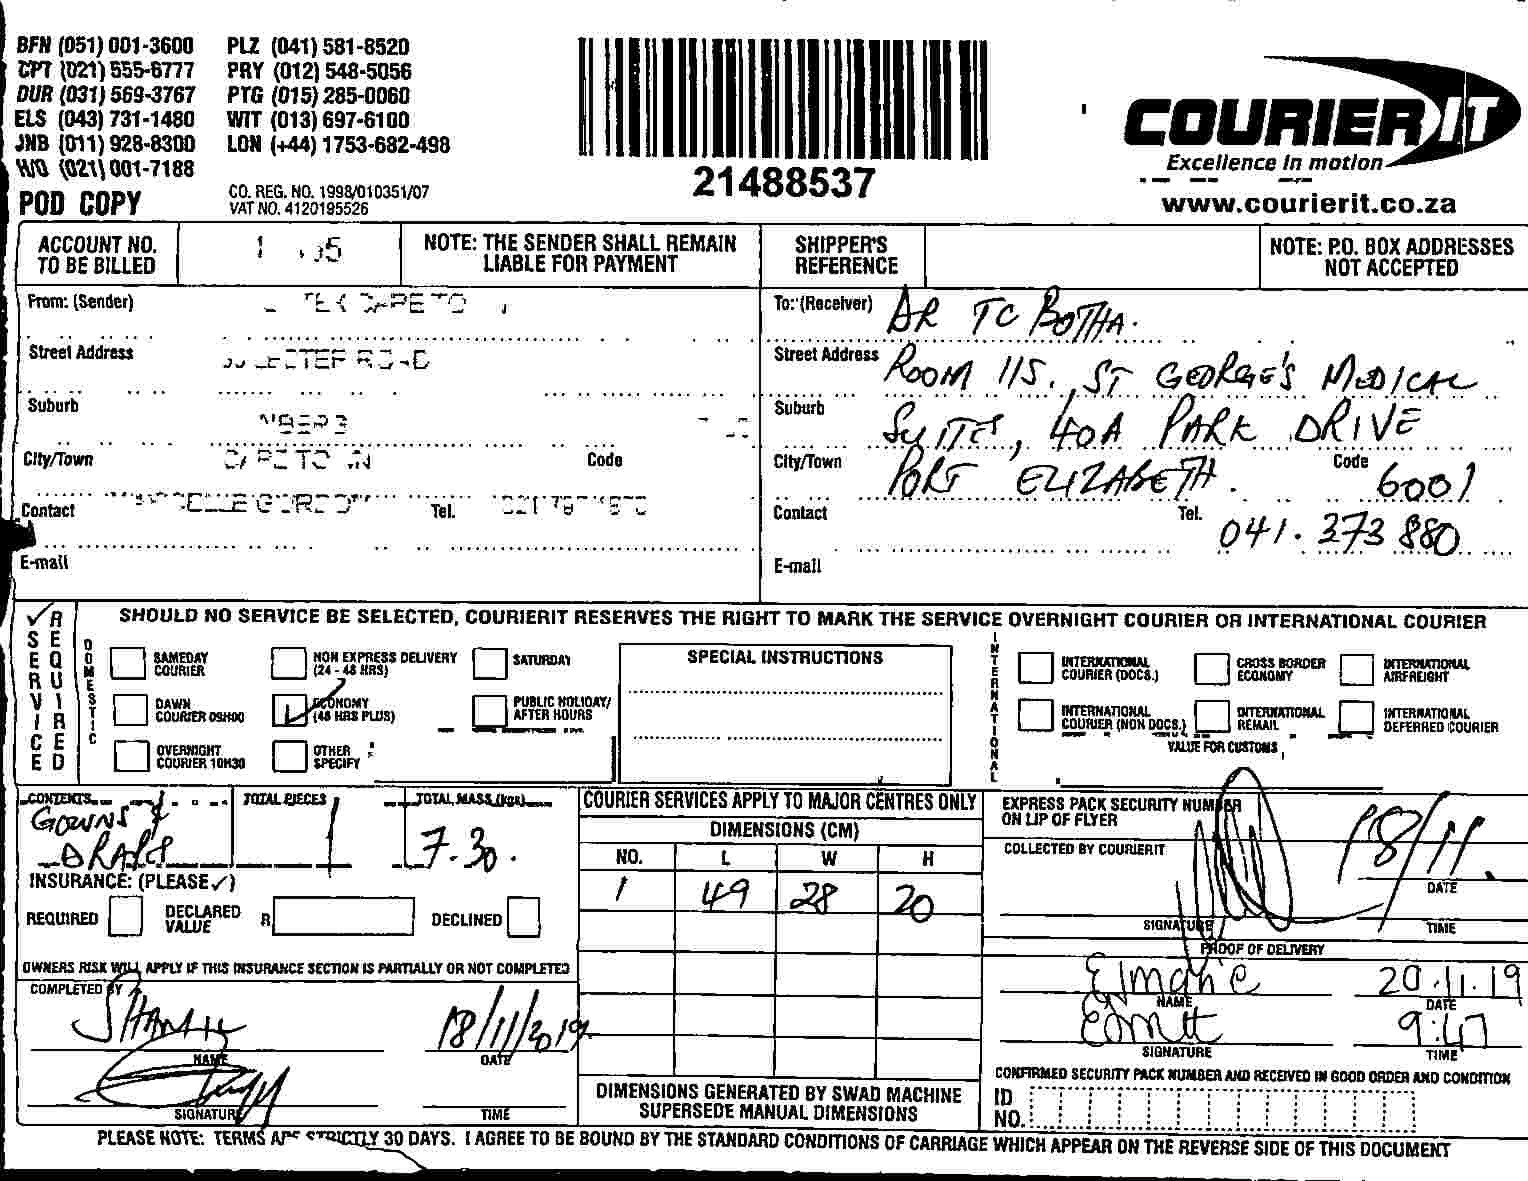 BFN (051) 001-3600 PLZ (041) 581-8520
CPT (021) 555-6777 PRY (012) 548-5056
DUR (031) 569-3767 PTG (015) 285-0060
ELS (043) 731-1480 WIT (013) 697-6100
JNB (011) 928-8300 LON (+44) 1753-682-498
(021) 001-7188
POD COPY
CO. REG. NO. 1998/010351/07
VAT NO. 4120195526
21488537
COURIER IT
Excellence in motion
www.courierit.co.za
ACCOUNT NO.
TO BE BILLED
NOTE: THE SENDER SHALL REMAIN
LIABLE FOR PAYMENT
SHIPPER'S
REFERENCE
NOTE: P.O. BOX ADDRESSES
NOT ACCEPTED
From: (Sender)
Street Address
ROAD
Suburb
City/Town CAPE TOWN Code
Contact Tel.
E-mail
To: (Receiver) DR TC BOTHA.
Street Address ROOM 115, ST GEORGE'S MEDICAL
Suburb SUITES, 40A PARK DRIVE
City/Town PORT ELIZABETH. Code 6001
Contact Tel. 041.373 880
E-mail
✓ SERVICE REQUIRED
SHOULD NO SERVICE BE SELECTED, COURIERIT RESERVES THE RIGHT TO MARK THE SERVICE OVERNIGHT COURIER OR INTERNATIONAL COURIER
DOMESTIC
SAMEDAY COURIER
NON EXPRESS DELIVERY (24 - 48 HRS)
SATURDAY
DAWN COURIER 09H00
ECONOMY (48 HRS PLUS)
PUBLIC HOLIDAY/ AFTER HOURS
OVERNIGHT COURIER 10H30
OTHER SPECIFY
SPECIAL INSTRUCTIONS
INTERNATIONAL
INTERNATIONAL COURIER (DOCS.)
CROSS BORDER ECONOMY
INTERNATIONAL AIRFREIGHT
INTERNATIONAL COURIER (NON DOCS.)
INTERNATIONAL REMAIL
INTERNATIONAL DEFERRED COURIER
VALUE FOR CUSTOMS
CONTENTS TOTAL PIECES TOTAL MASS (kgs)
GOWNS &
DRAPES 1 7.30.
INSURANCE: (PLEASE ✓)
REQUIRED DECLARED VALUE R DECLINED
OWNERS RISK WILL APPLY IF THIS INSURANCE SECTION IS PARTIALLY OR NOT COMPLETED
COMPLETED BY
18/11/2019
NAME DATE
SIGNATURE TIME
COURIER SERVICES APPLY TO MAJOR CENTRES ONLY
DIMENSIONS (CM)
NO. L W H
1 49 28 20
DIMENSIONS GENERATED BY SWAD MACHINE
SUPERSEDE MANUAL DIMENSIONS
EXPRESS PACK SECURITY NUMBER
ON LIP OF FLYER
COLLECTED BY COURIERIT
18/11.
DATE
SIGNATURE TIME
PROOF OF DELIVERY
Elmarie 20.11.19
NAME DATE
9:40
SIGNATURE TIME
CONFIRMED SECURITY PACK NUMBER AND RECEIVED IN GOOD ORDER AND CONDITION
ID NO.
PLEASE NOTE: TERMS ARE STRICTLY 30 DAYS. I AGREE TO BE BOUND BY THE STANDARD CONDITIONS OF CARRIAGE WHICH APPEAR ON THE REVERSE SIDE OF THIS DOCUMENT